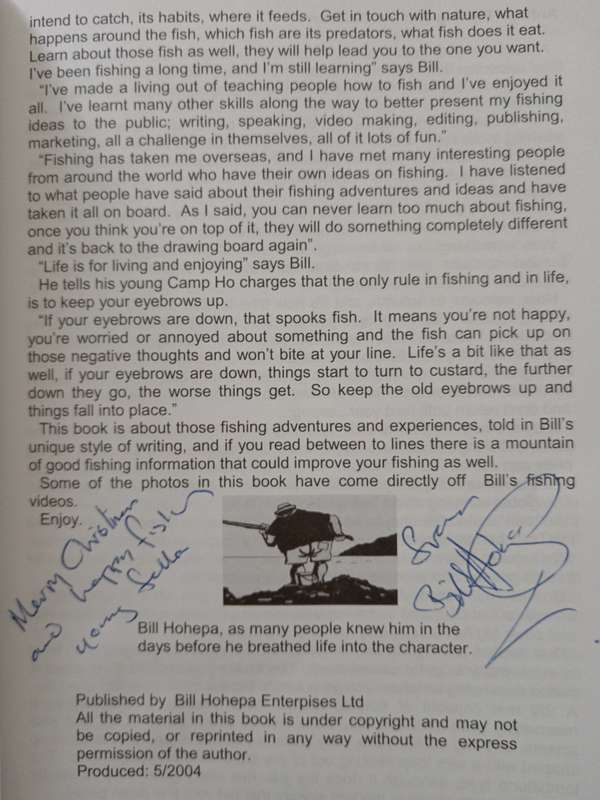 intend to catch, its habits, where it feeds.  Get in touch with nature, what
happens around the fish, which fish are its predators, what fish does it eat.
Learn about those fish as well, they will help lead you to the one you want.
I've been fishing a long time, and I'm still learning" says Bill.
"I've made a living out of teaching people how to fish and I've enjoyed it
all.  I've learnt many other skills along the way to better present my fishing
ideas to the public; writing, speaking, video making, editing, publishing,
marketing, all a challenge in themselves, all of it lots of fun."
"Fishing has taken me overseas, and I have met many interesting people
from around the world who have their own ideas on fishing.  I have listened
to what people have said about their fishing adventures and ideas and have
taken it all on board.  As I said, you can never learn too much about fishing,
once you think you're on top of it, they will do something completely different
and it's back to the drawing board again".
"Life is for living and enjoying" says Bill.
He tells his young Camp Ho charges that the only rule in fishing and in life,
is to keep your eyebrows up.
"If your eyebrows are down, that spooks fish.  It means you're not happy,
you're worried or annoyed about something and the fish can pick up on
those negative thoughts and won't bite at your line.  Life's a bit like that as
well, if your eyebrows are down, things start to turn to custard, the further
down they go, the worse things get.  So keep the old eyebrows up and
things fall into place."
This book is about those fishing adventures and experiences, told in Bill's
unique style of writing, and if you read between to lines there is a mountain
of good fishing information that could improve your fishing as well.
Some of the photos in this book have come directly off  Bill's fishing
videos.
Enjoy.
Merry Christmas
and happy fishing
young fella
Bill Hohepa
Bill Hohepa, as many people knew him in the
days before he breathed life into the character.
Published by  Bill Hohepa Enterpises Ltd
All the material in this book is under copyright and may not
be copied, or reprinted in any way without the express
permission of the author.
Produced: 5/2004